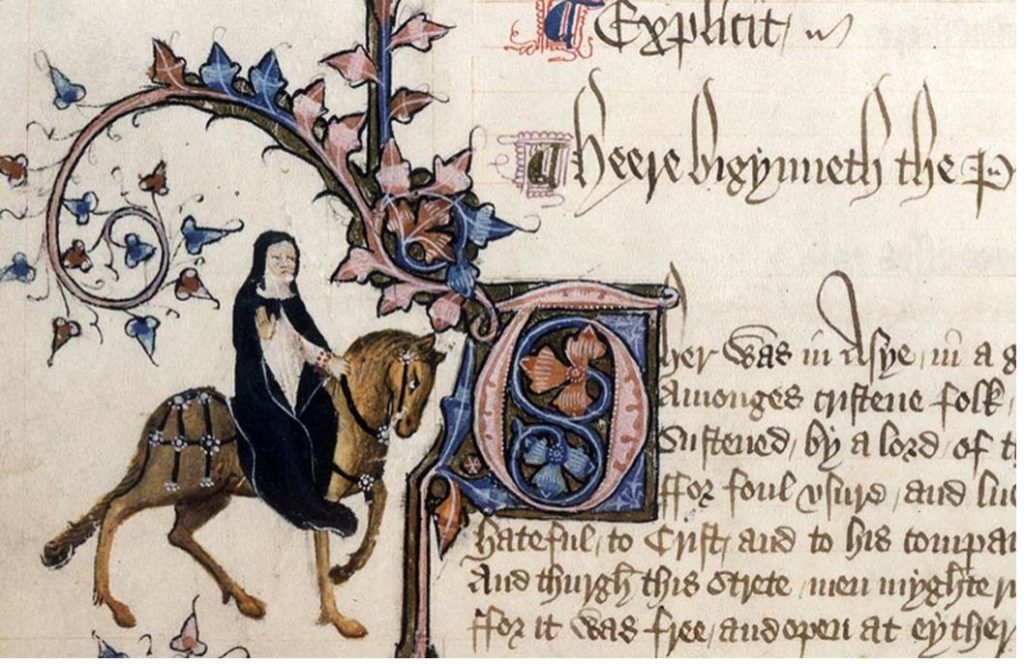 ¶ Explicit /
¶ Heere bigynneth the P
Ther was in Asye / in a g
Amonges cristene folk /
Sustened / by a lord / of t
ffor foul vsure / and luc
Hateful / to Crist / and to his compai
And thurgh this Strete / men myghte r
ffor it was free / and open at eyther